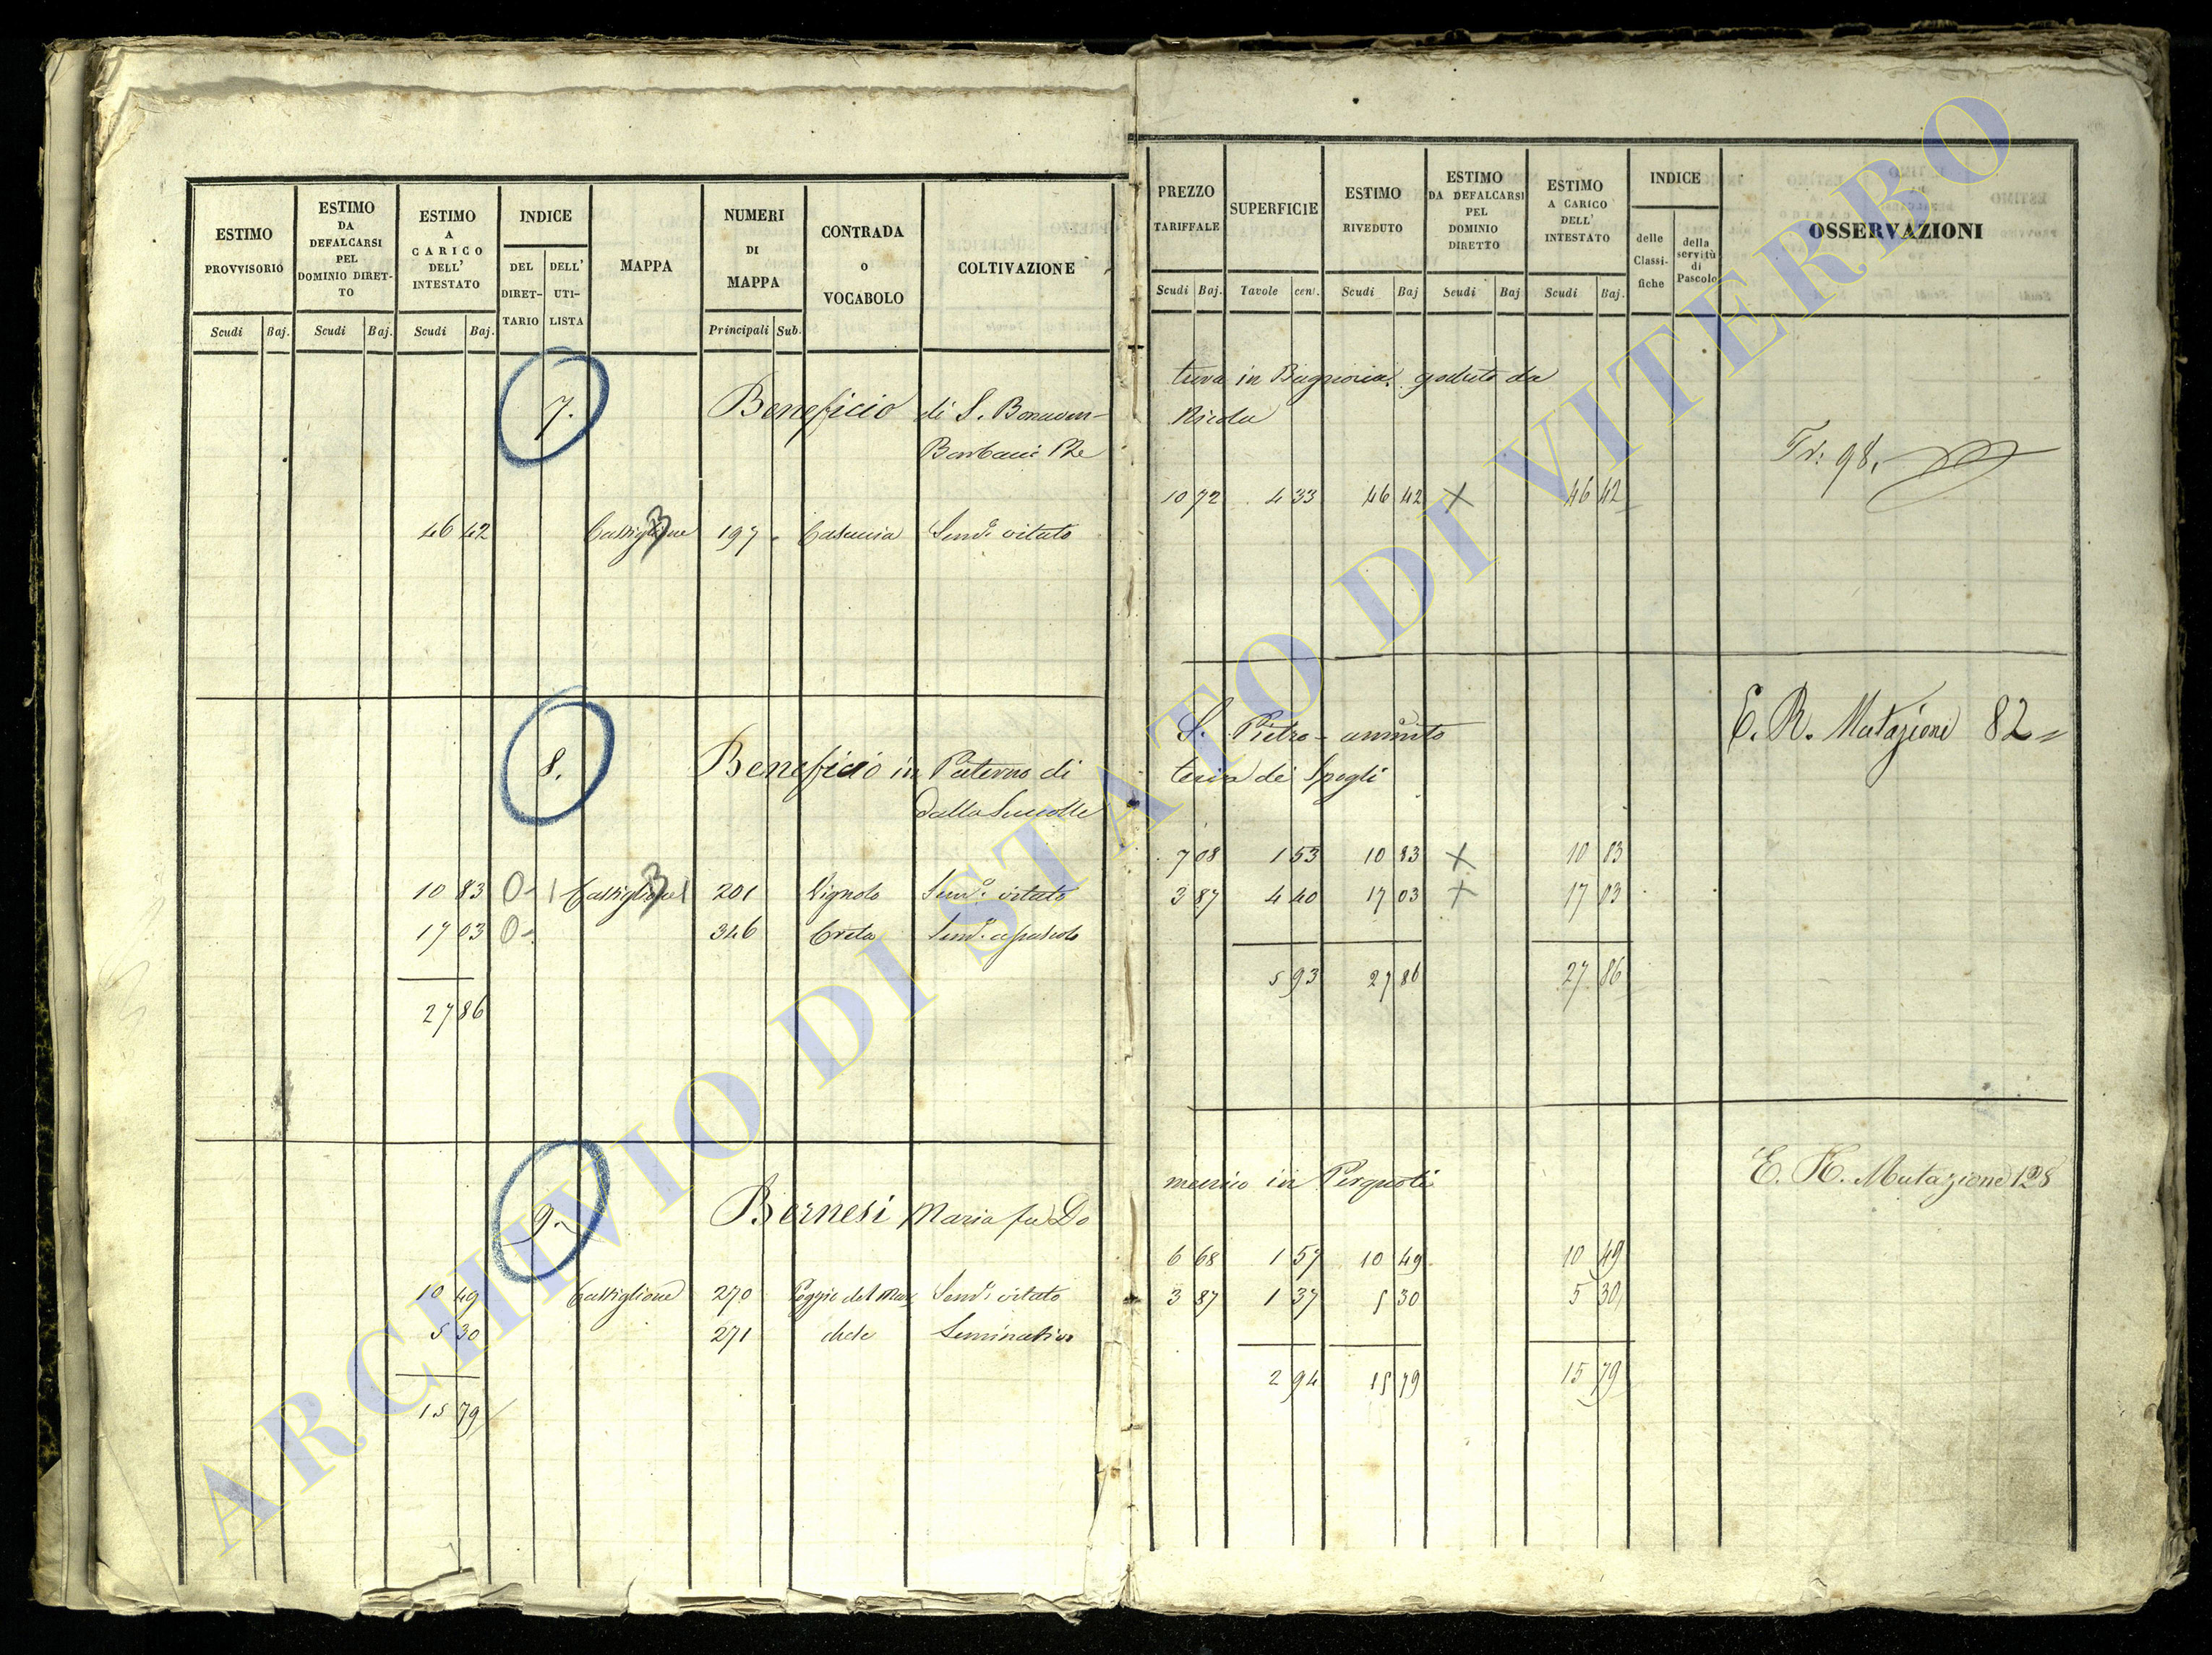 ESTIMO PROVVISORIO
ESTIMO DA DEFALCARSI PEL DOMINIO DIRET-TO
ESTIMO A CARICO DELL' INTESTATO
INDICE
DEL DIRET-TARIO
DELL' UTI-LISTA
MAPPA
NUMERI DI MAPPA
CONTRADA o VOCABOLO
COLTIVAZIONE
Scudi Baj. Scudi Baj. Scudi Baj. Principali Sub.
PREZZO TARIFFALE
SUPERFICIE
ESTIMO RIVEDUTO
ESTIMO DA DEFALCARSI PEL DOMINIO DIRETTO
ESTIMO A CARICO DELL' INTESTATO
INDICE
delle Classi-fiche
della servitù di Pascolo
OSSERVAZIONI
Scudi Baj. Tavole cen. Scudi Baj Scudi Baj Scudi Baj.
7. Beneficio di S. Bonaven-
tura in Bagnorea goduto da
Nicola
Tr: 98.
46 42 Castiglione 3 197 Sem.o vitato
10 72 4 33 46 42 X 46 42
8. Beneficio in Paterno di
S. Pietro - ammto
E. R. Mutazione 82
dalla
di Spogli
10 83 0- Castiglione 3 201 Vignolo Sem.o vitato
7 08 1 53 10 83 X 10 83
17 03 0- 346 Creta Sem.o a pascolo
3 87 4 40 17 03 X 17 03
27 86
5 93 27 86 27 86
9. Bernesi Maria fu Do
menico in
E. R. Mutazione 128
10 49 Castiglione 270 Poggio del Sem.o vitato
6 68 1 57 10 49 10 49
5 30 271 dede Seminativo
3 87 1 37 5 30 5 30
15 79
2 94 15 79 15 79
ARCHIVIO DI STATO DI VITERBO